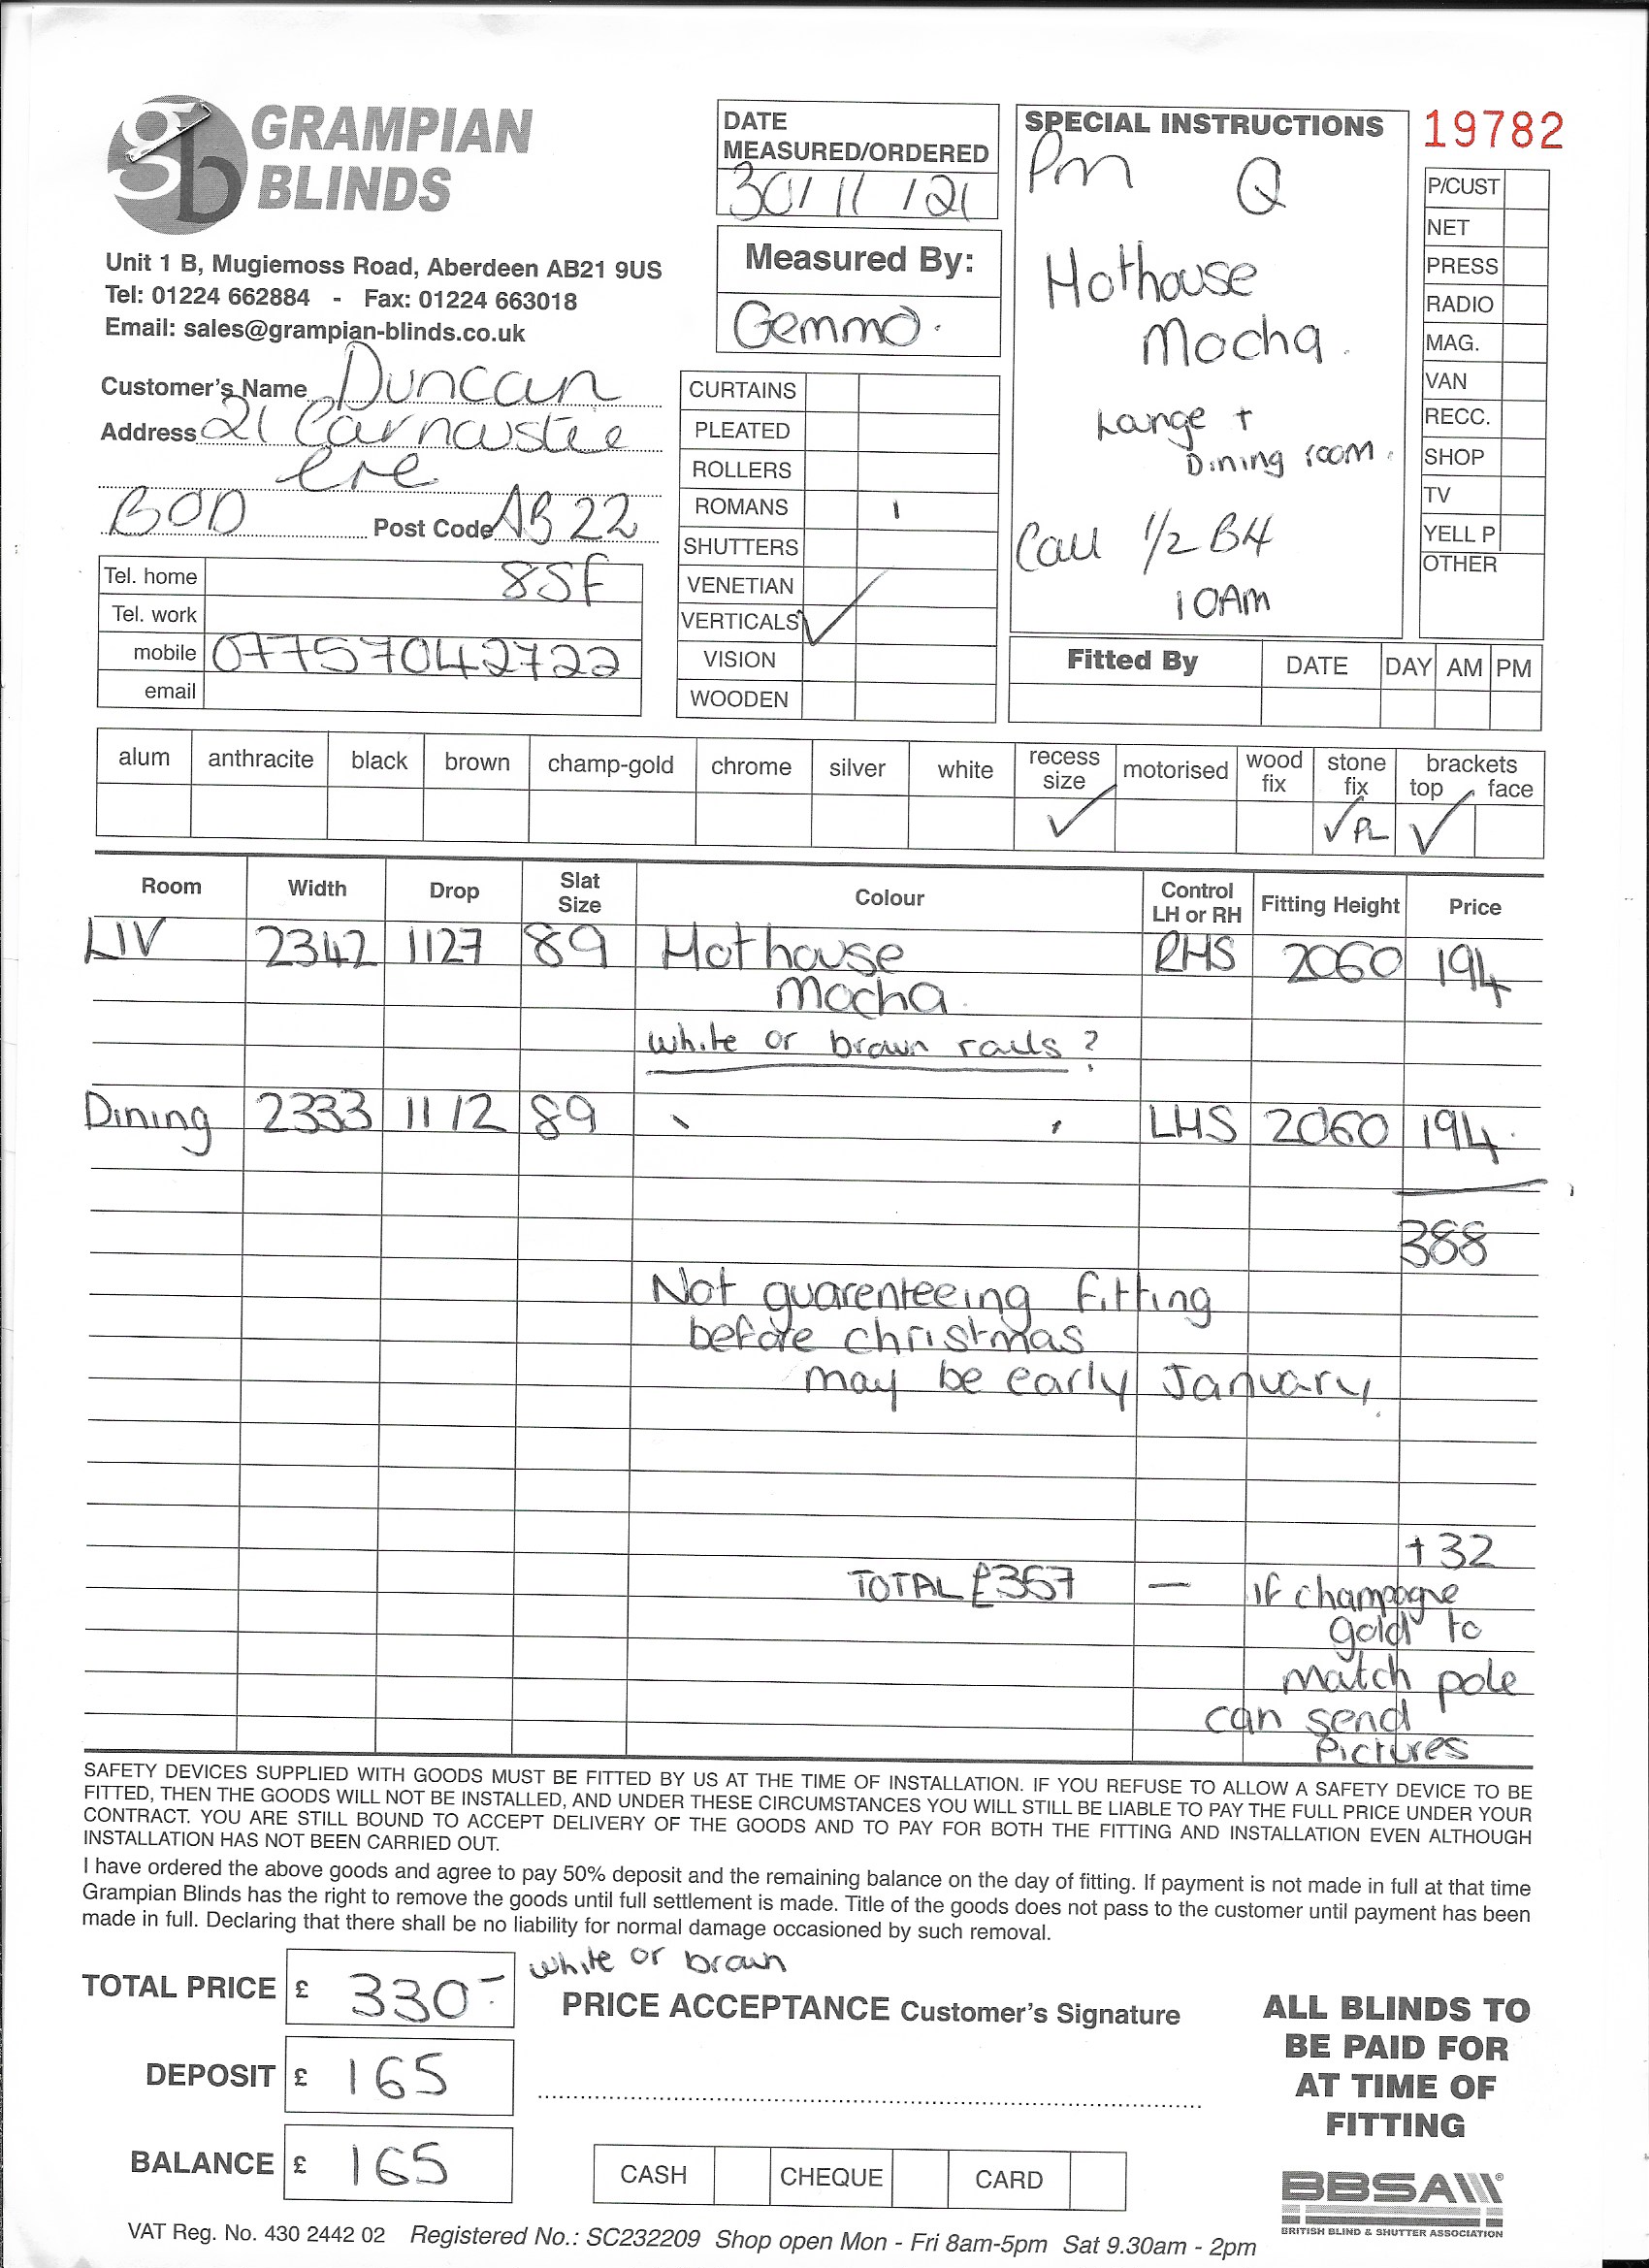 gb GRAMPIAN
BLINDS
Unit 1 B, Mugiemoss Road, Aberdeen AB21 9US
Tel: 01224 662884 - Fax: 01224 663018
Email: sales@grampian-blinds.co.uk
Customer's Name Duncan
Address 21 Carnoustie
Cre
BOD Post Code AB22
8SF
Tel. home
Tel. work
mobile 07757042722
email
DATE
MEASURED/ORDERED
30/11/21
Measured By:
Gemma.
CURTAINS
PLEATED
ROLLERS
ROMANS
SHUTTERS
VENETIAN
VERTICALS ✓
VISION
WOODEN
SPECIAL INSTRUCTIONS
Pm Q
Hothouse
Mocha.
Lounge +
Dining room.
Call 1/2 B4
10AM
19782
P/CUST
NET
PRESS
RADIO
MAG.
VAN
RECC.
SHOP
TV
YELL P
OTHER
Fitted By DATE DAY AM PM
alum anthracite black brown champ-gold chrome silver white recess size motorised wood fix stone fix brackets top face
✓ ✓ PL ✓
Room Width Drop Slat Size Colour Control LH or RH Fitting Height Price
LIV 2342 1127 89 Hothouse RHS 2060 194
Mocha.
white or brown rails?
Dining 2333 1112 89 " " LHS 2060 194.
388
Not guarenteeing fitting
before christmas
may be early January.
+32
TOTAL £357 — if champagne
gold to
match pole
can send
Pictures
SAFETY DEVICES SUPPLIED WITH GOODS MUST BE FITTED BY US AT THE TIME OF INSTALLATION. IF YOU REFUSE TO ALLOW A SAFETY DEVICE TO BE
FITTED, THEN THE GOODS WILL NOT BE INSTALLED, AND UNDER THESE CIRCUMSTANCES YOU WILL STILL BE LIABLE TO PAY THE FULL PRICE UNDER YOUR
CONTRACT. YOU ARE STILL BOUND TO ACCEPT DELIVERY OF THE GOODS AND TO PAY FOR BOTH THE FITTING AND INSTALLATION EVEN ALTHOUGH
INSTALLATION HAS NOT BEEN CARRIED OUT.
I have ordered the above goods and agree to pay 50% deposit and the remaining balance on the day of fitting. If payment is not made in full at that time
Grampian Blinds has the right to remove the goods until full settlement is made. Title of the goods does not pass to the customer until payment has been
made in full. Declaring that there shall be no liability for normal damage occasioned by such removal.
white or brown
TOTAL PRICE £ 330-
PRICE ACCEPTANCE Customer's Signature
DEPOSIT £ 165
BALANCE £ 165
CASH CHEQUE CARD
ALL BLINDS TO
BE PAID FOR
AT TIME OF
FITTING
BBSA®
BRITISH BLIND & SHUTTER ASSOCIATION
VAT Reg. No. 430 2442 02 Registered No.: SC232209 Shop open Mon - Fri 8am-5pm Sat 9.30am - 2pm